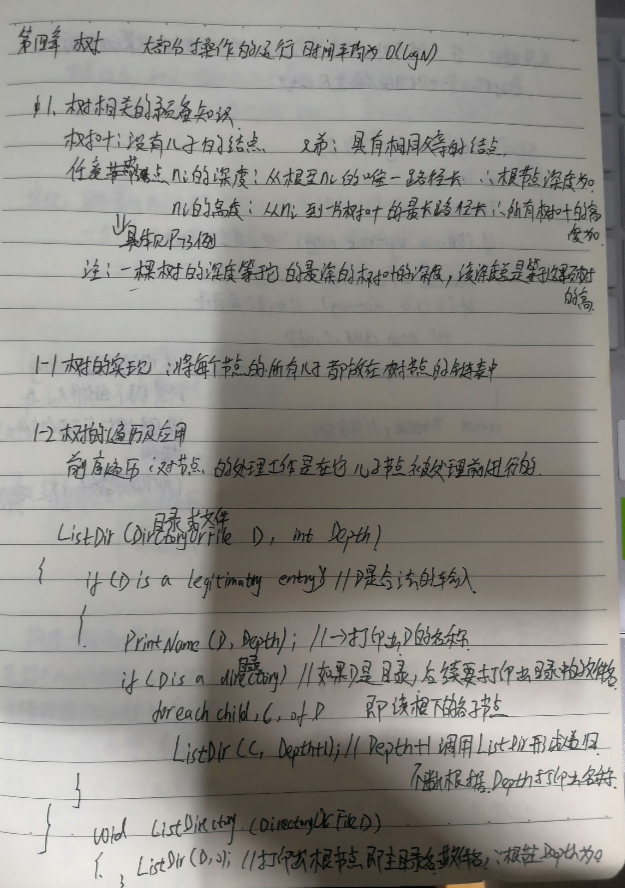 第四章 树 大部分操作的运行时间平均为O(logN)
§1. 树相关的预备知识
树叶:没有儿子的结点. 兄弟:具有相同父亲的结点
任意节点ni的深度:从根至ni的唯一路径长 ∴根节点深度为0.
ni的高度:从ni到一片树叶的最长路径长∴所有树叶的高度为0.
具体见P73例
注:一棵树的深度等于它的最深的树叶的深度,该深度总是等于这棵树的高.
1-1 树的实现:将每个节点的所有儿子都放在树节点的链表中
1-2 树的遍历及应用
前序遍历:对节点的处理工作是在它儿子节点被处理前进行的.
目录或文件
ListDir (DirectoryOrFile D, int Depth)
{ if (D is a legitimatry entry) //D是合法的输入.
{
PrintName (D, Depth); //→打印出D的名称.
目录
if (D is a directory) //如果D是目录,后续要打印出目录中的文件名
for each child, C, of D 即该根下的各子节点
ListDir (C, Depth+1); // Depth+1 调用ListDir形成递归.
不断根据Depth打印出名称.
}
} void ListDirectory (DirectoryOrFile D)
{ ListDir (D,0); //打印出根节点即主目录名或文件名,∵根节点Depth为0
}